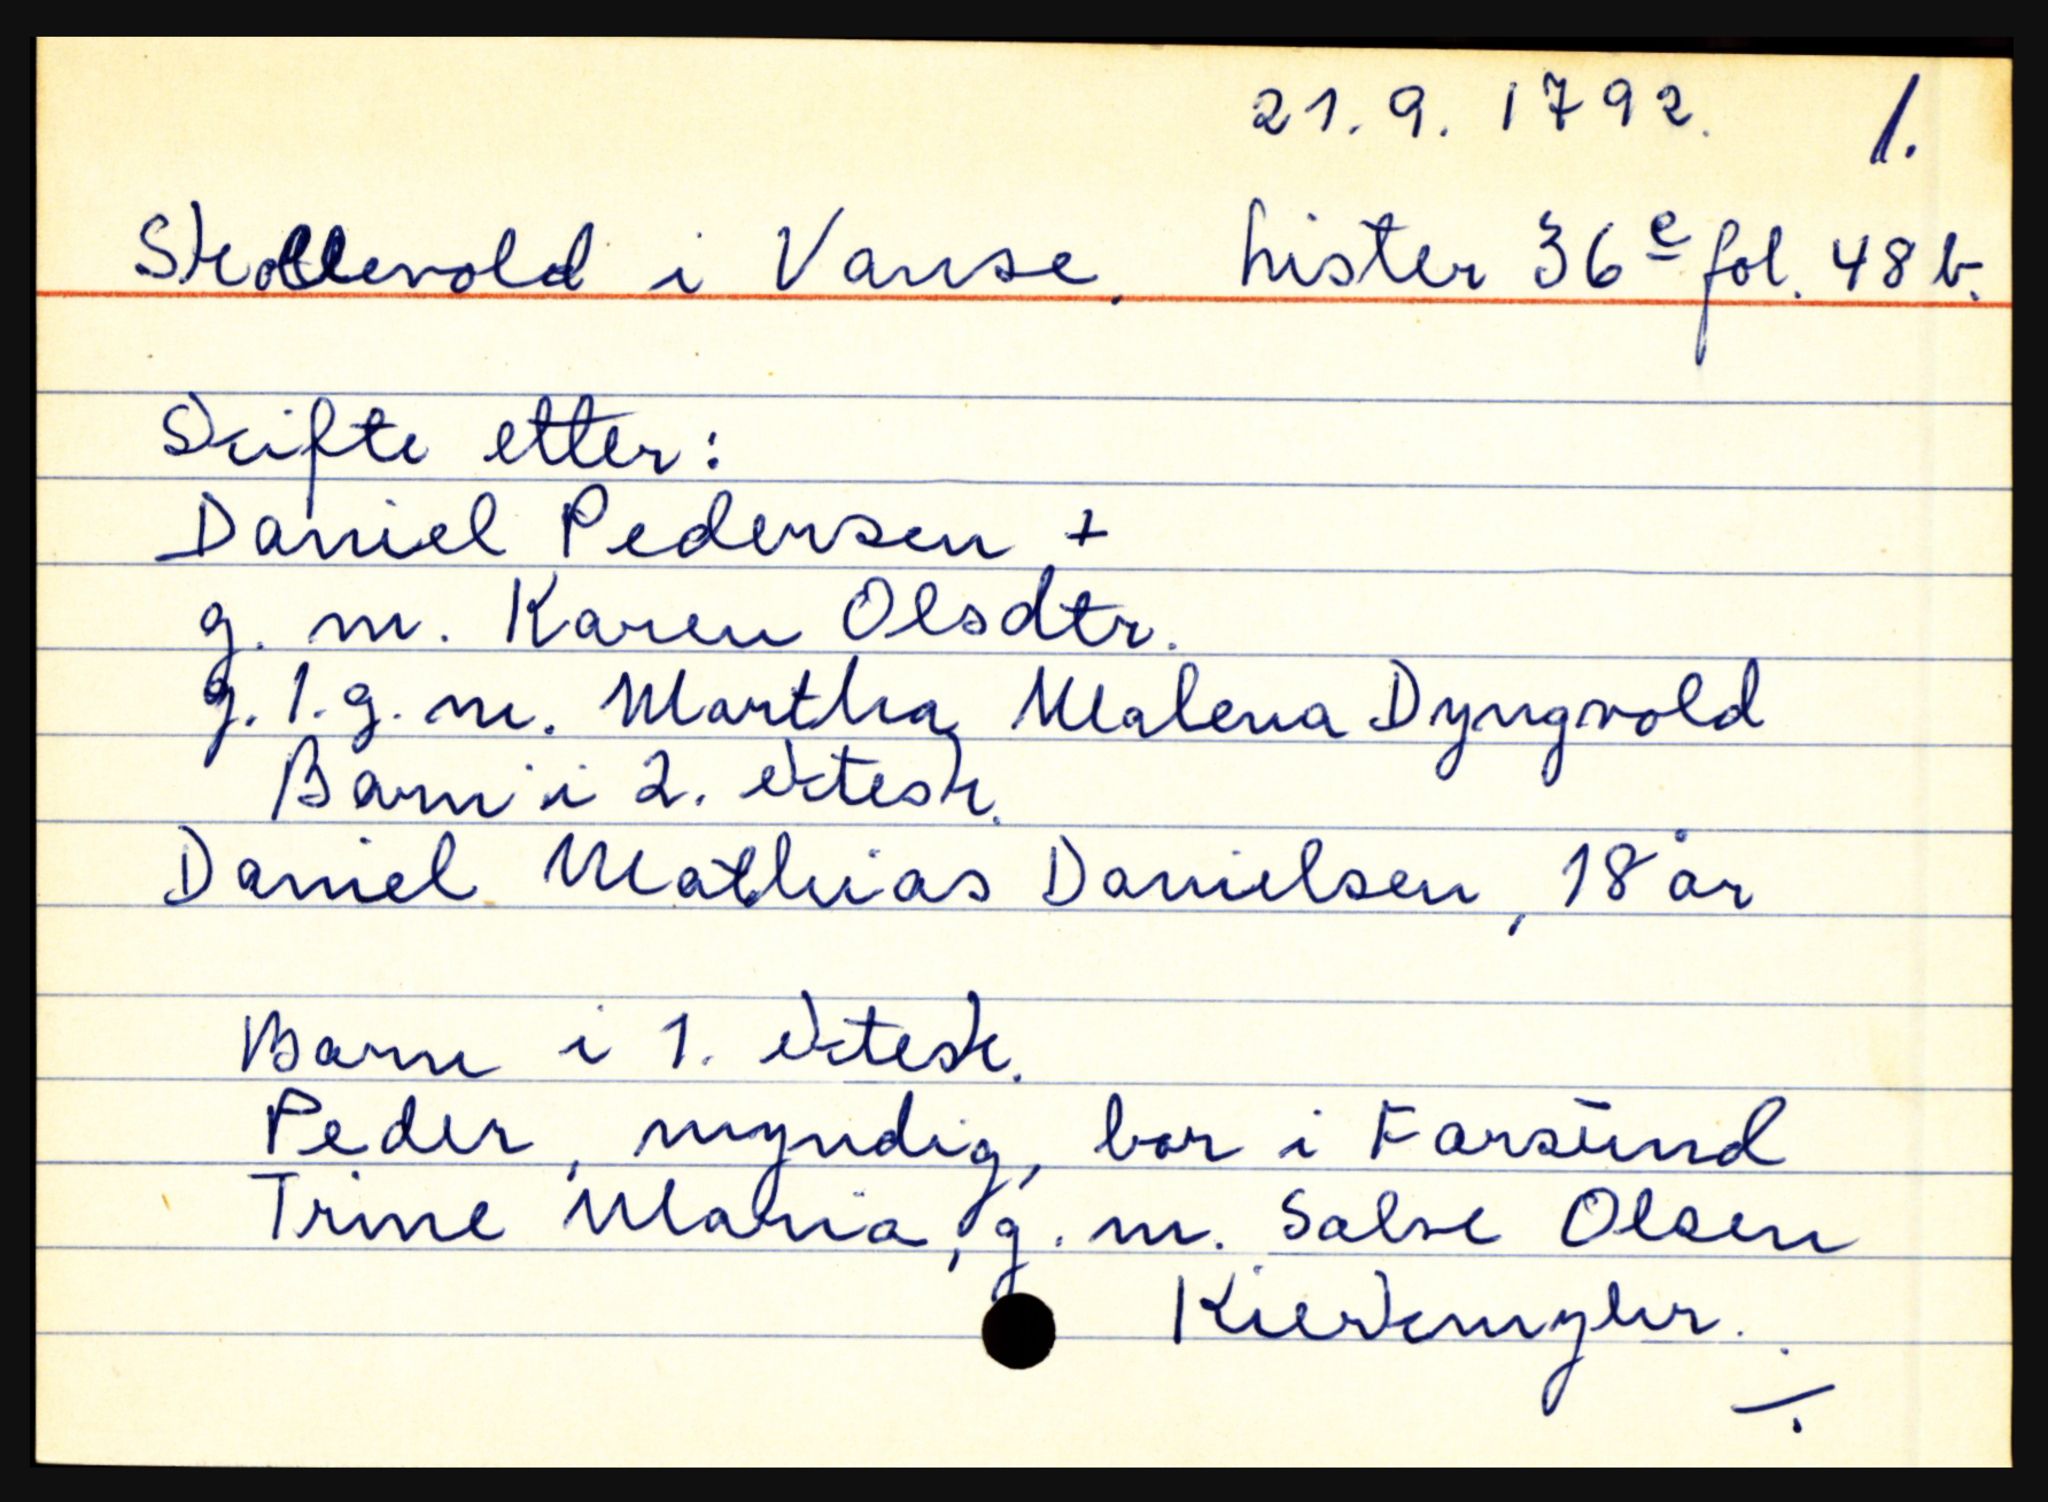 21.9.1792. 1.
Skollevold i Vanse. Lister 36 e fol. 48 b.
Skifte etter:
Daniel Pedersen +
g. m. Karen Olsdtr.
g. 1. g. m. Martha Malena Dyngvold
Barn i 2. ektesk.
Daniel Mathias Danielsen, 18 år
Barn i 1. ektesk.
Peder, myndig, bor i Farsund
Trine Maria, g. m. Salve Olsen
Kierkemyhr.